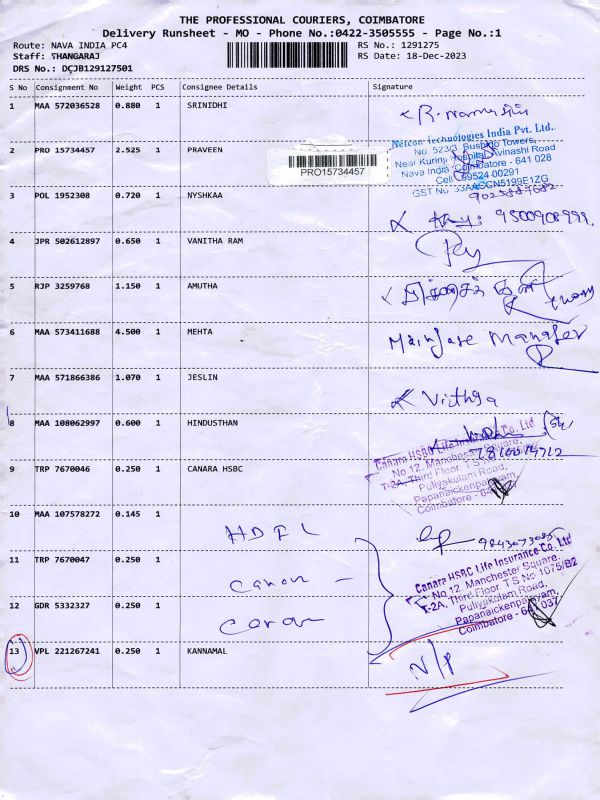 THE PROFESSIONAL COURIERS, COIMBATORE
Delivery Runsheet - MO - Phone No.:0422-3505555 - Page No.:1
Route: NAVA INDIA PC4
RS No.: 1291275
Staff: THANGARAJ
RS Date: 18-Dec-2023
DRS No.: DCJB129127501
S No Consignment No Weight PCS Consignee Details Signature
1 MAA 572036528 0.880 1 SRINIDHI
Netcon Technologies India Pvt. Ltd.
No. 523/3, Busbho Towers,
Near Kurinji Hospital, Avinashi Road
Nava India, Coimbatore - 641 028
Cell: 99524 00291
2 PRO 15734457 2.525 1 PRAVEEN
PRO15734457
3 POL 1952308 0.720 1 NYSHKAA
4 JPR 502612897 0.650 1 VANITHA RAM
5 RJP 3259768 1.150 1 AMUTHA
6 MAA 573411688 4.500 1 MEHTA
Manager
7 MAA 571866386 1.070 1 JESLIN
8 MAA 108062997 0.600 1 HINDUSTHAN
Canara HSBC Life Insurance Co. Ltd
No 12, Manchester Square,
T-2A, Third Floor, T S No
Puliyakulam Road,
Papanaickenpalayam,
Coimbatore - 641
9 TRP 7670046 0.250 1 CANARA HSBC
10 MAA 107578272 0.145 1
11 TRP 7670047 0.250 1
Canara HSBC Life Insurance Co. Ltd
No 12, Manchester Square,
T-2A, Third Floor, T S No 1075/B2
Puliyakulam Road,
Papanaickenpalayam,
Coimbatore - 641 037
12 GDR 5332327 0.250 1
13 VPL 221267241 0.250 1 KANNAMAL
N/P